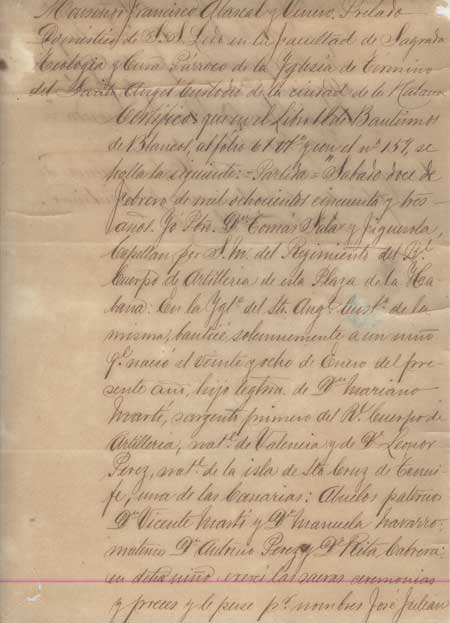 Monseñor Francisco Abascal y Venero. Prelado
Doméstico de S.S. Licdo en la facultad de Sagrada
Teología y Cura Párroco de la Yglesia de Termino
del Santo Angel Custodio de la ciudad de la Habana
Certifico: que en el Libro de Bautismos
de Blancos, al folio 61 vto y con el nº, se
halla la siguiente: = Partida = "Sabado doce de
febrero de mil ochocientos cincuenta y tres
años. Yo Pbro. Dn Tomás Sala y Figuerola,
Capellan por S.M. del Regimiento del Rl.
Cuerpo de Artilleria de esta Plaza de la Ha-
bana: En la Ygla. del Sto. Angl. Custo. de la
misma; bauticé solemnemente a un niño
qe. nació el veinte y ocho de Enero del pre-
sente año, hijo legtmo. de Dn Mariano
Martí, sargento primero del Rl. Cuerpo de
Artilleria, natl. de Valencia y de Da. Leonor
Perez, natl. de la isla de Sta Cruz de Tenerí-
fe, una de las Canarias: Abuelos paternos
Dn Vicente Martí y Da. Manuela Navarro=
maternos Dn Antonio Perez y Da. Rita Cabrera:
en dicho niño ejercí las sacras ceremonias
y preces y le puse pr. nombres José Julian